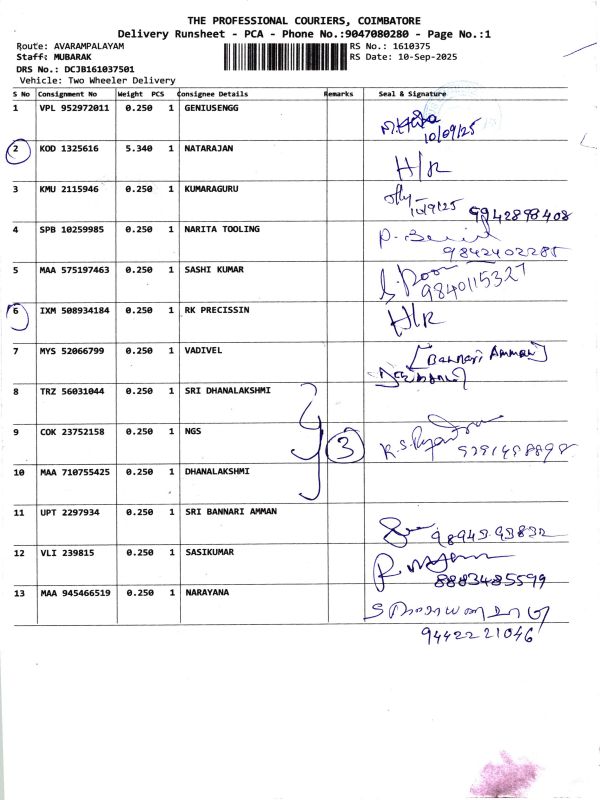 THE PROFESSIONAL COURIERS, COIMBATORE
Delivery Runsheet - PCA - Phone No.:9047080280 - Page No.:1
Route: AVARAMPALAYAM RS No.: 1610375
Staff: MUBARAK RS Date: 10-Sep-2025
DRS No.: DCJB161037501
Vehicle: Two Wheeler Delivery
S No Consignment No Weight PCS Consignee Details Remarks Seal & Signature
1 VPL 952972011 0.250 1 GENIUSENGG
10/09/25
2 KOD 1325616 5.340 1 NATARAJAN H/R
3 KMU 2115946 0.250 1 KUMARAGURU
10/9/25 9942898408
4 SPB 10259985 0.250 1 NARITA TOOLING
9842402285
5 MAA 575197463 0.250 1 SASHI KUMAR
9840115327
6 IXM 508934184 0.250 1 RK PRECISSIN H/R
7 MYS 52066799 0.250 1 VADIVEL [Bannari Amman]
8 TRZ 56031044 0.250 1 SRI DHANALAKSHMI
9 COK 23752158 0.250 1 NGS 3
10 MAA 710755425 0.250 1 DHANALAKSHMI
11 UPT 2297934 0.250 1 SRI BANNARI AMMAN
12 VLI 239815 0.250 1 SASIKUMAR
8883485599
13 MAA 945466519 0.250 1 NARAYANA
9442221046